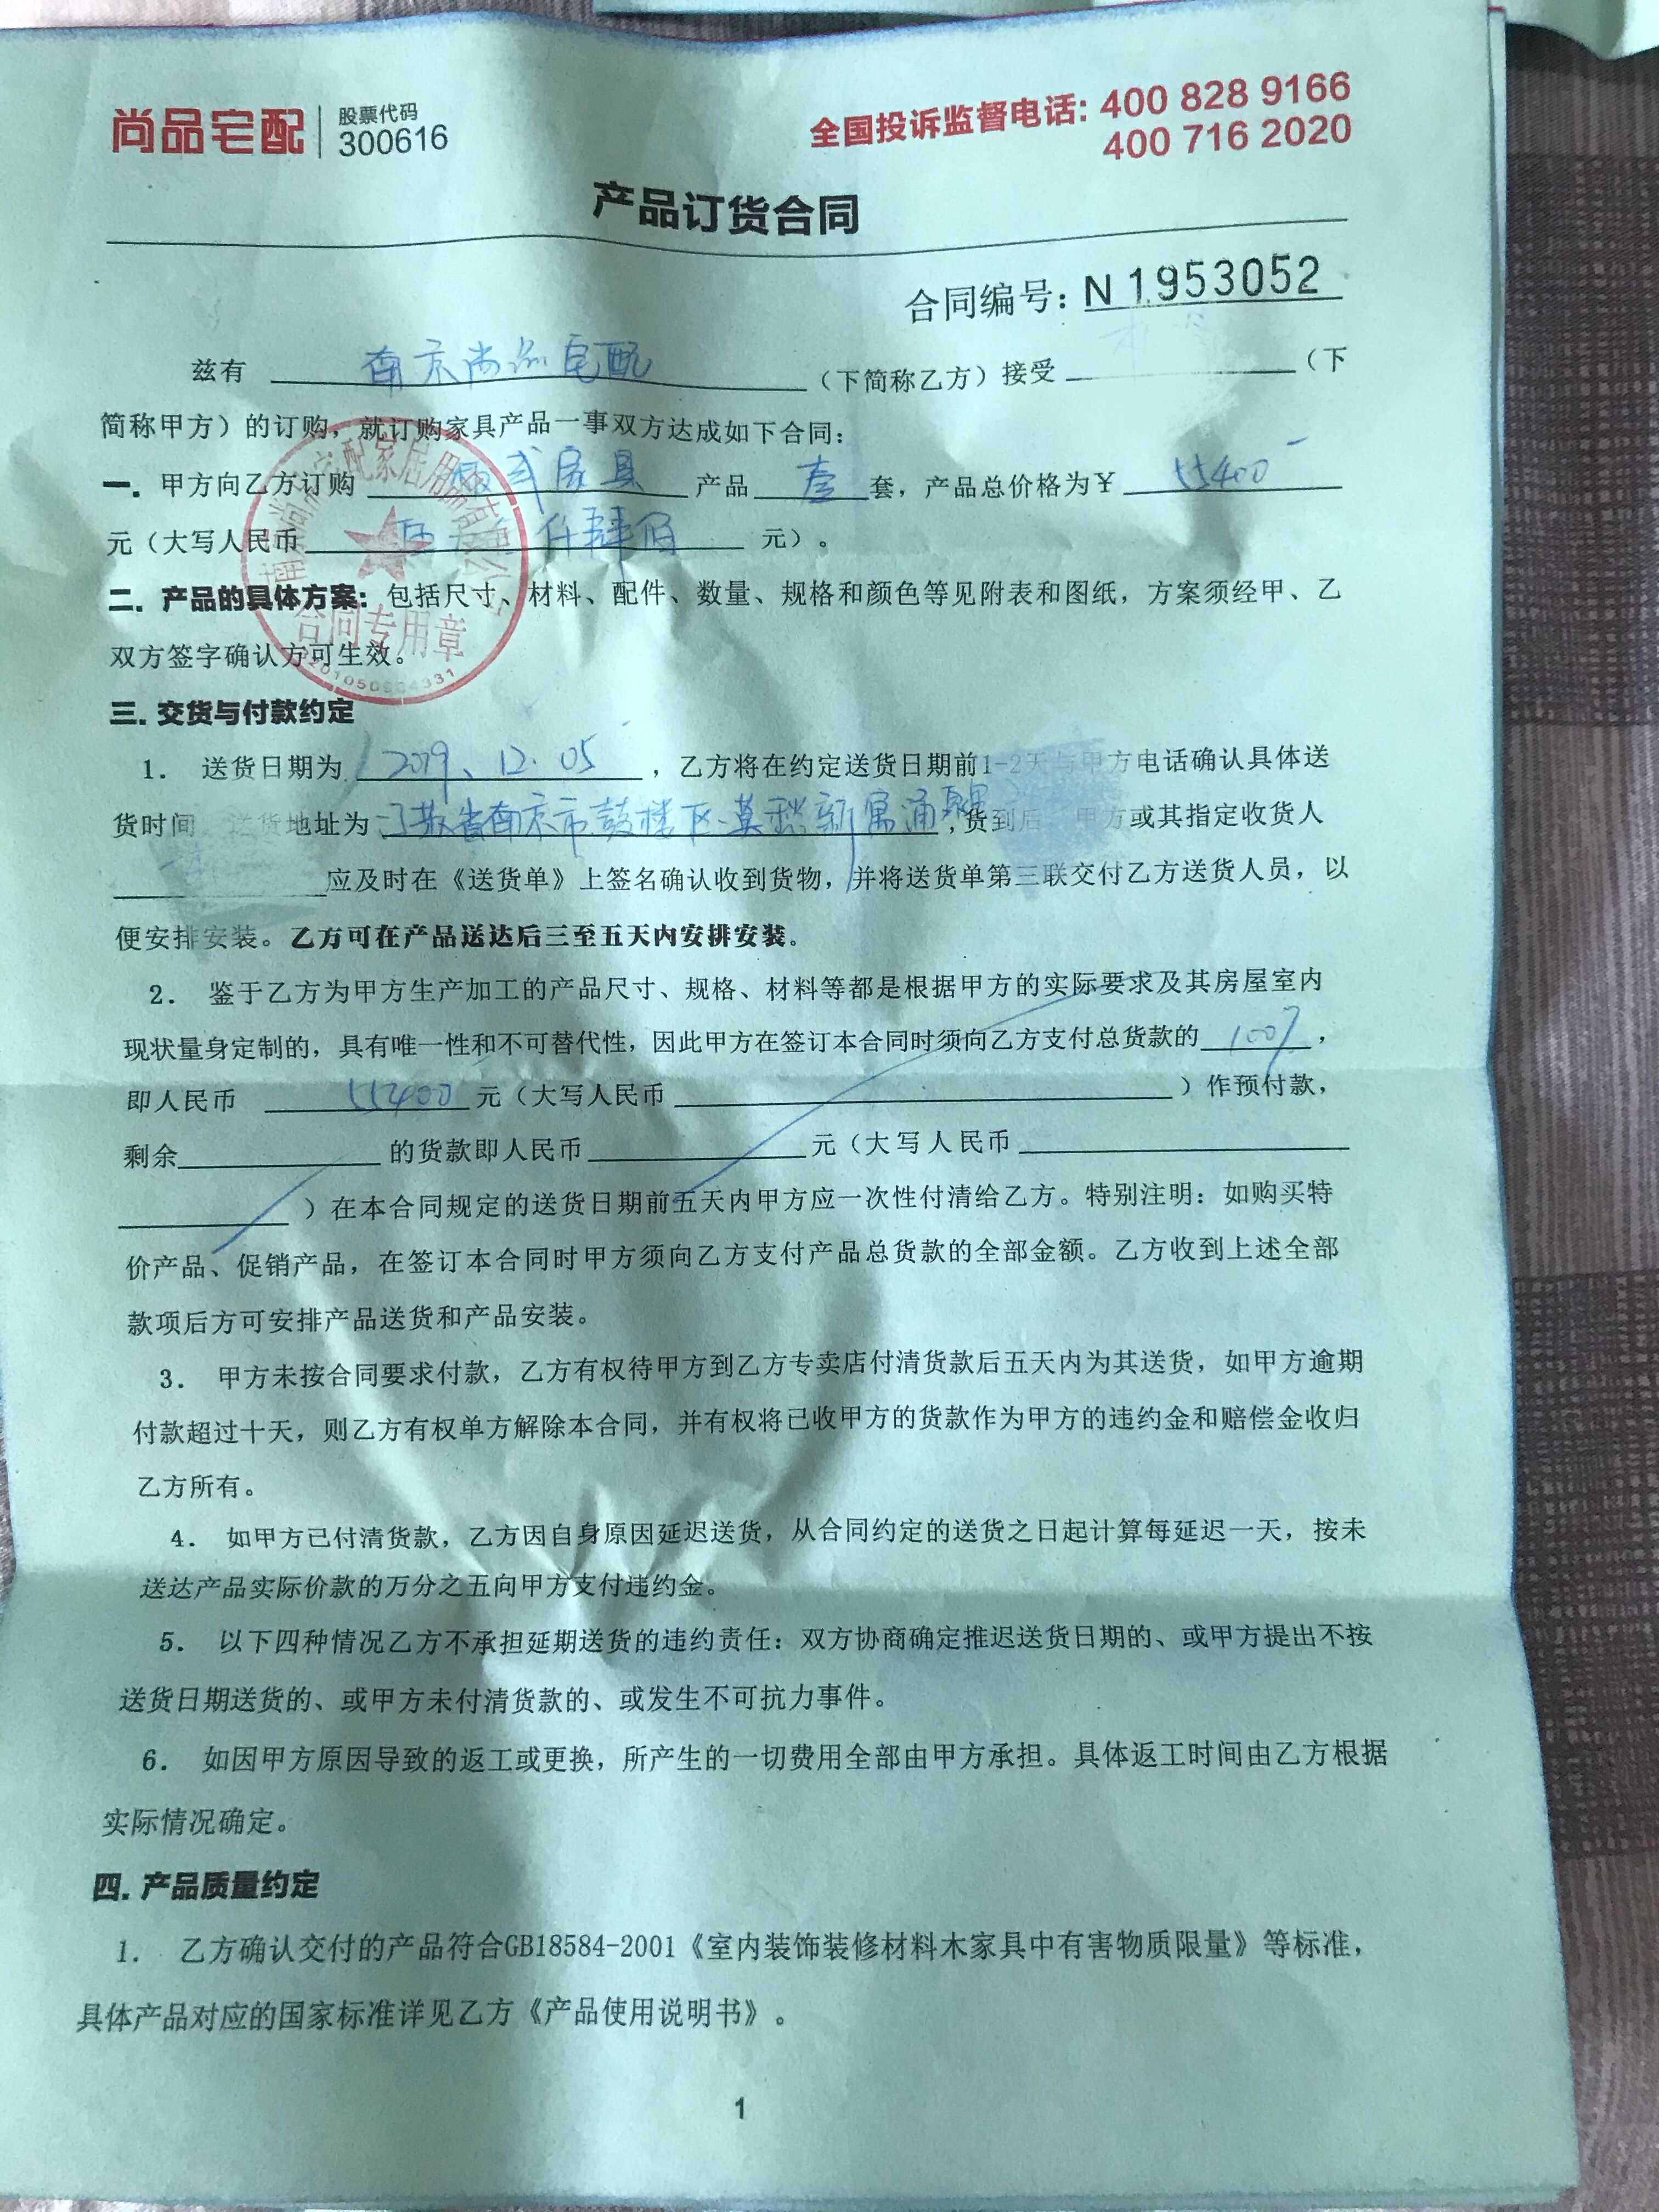 尚品宅配 股票代码
300616
全国投诉监督电话: 400 828 9166
400 716 2020
产品订货合同
合同编号: N 1953052
兹有 南京尚品宅配 (下简称乙方) 接受 (下
简称甲方) 的订购, 就订购家具产品一事双方达成如下合同:
一. 甲方向乙方订购 式家具 产品 壹 套, 产品总价格为¥ 55400
元 (大写人民币 伍 仟肆佰 元) 。
二. 产品的具体方案: 包括尺寸、材料、配件、数量、规格和颜色等见附表和图纸, 方案须经甲、乙
双方签字确认方可生效。
合同专用章
三. 交货与付款约定
1. 送货日期为 2019、12.05 , 乙方将在约定送货日期前1-2天与甲方电话确认具体送
货时间 送货地址为 江苏省南京市鼓楼区莫愁新寓涌泉 , 货到后 甲方或其指定收货人
应及时在《送货单》上签名确认收到货物, 并将送货单第三联交付乙方送货人员, 以
便安排安装。乙方可在产品送达后三至五天内安排安装。
2. 鉴于乙方为甲方生产加工的产品尺寸、规格、材料等都是根据甲方的实际要求及其房屋室内
现状量身定制的, 具有唯一性和不可替代性, 因此甲方在签订本合同时须向乙方支付总货款的 100% ,
即人民币 55400 元 (大写人民币 ) 作预付款,
剩余 的货款即人民币 元 (大写人民币
) 在本合同规定的送货日期前五天内甲方应一次性付清给乙方。特别注明: 如购买特
价产品、促销产品, 在签订本合同时甲方须向乙方支付产品总货款的全部金额。乙方收到上述全部
款项后方可安排产品送货和产品安装。
3. 甲方未按合同要求付款, 乙方有权待甲方到乙方专卖店付清货款后五天内为其送货, 如甲方逾期
付款超过十天, 则乙方有权单方解除本合同, 并有权将已收甲方的货款作为甲方的违约金和赔偿金收归
乙方所有。
4. 如甲方已付清货款, 乙方因自身原因延迟送货, 从合同约定的送货之日起计算每延迟一天, 按未
送达产品实际价款的万分之五向甲方支付违约金。
5. 以下四种情况乙方不承担延期送货的违约责任: 双方协商确定推迟送货日期的、或甲方提出不按
送货日期送货的、或甲方未付清货款的、或发生不可抗力事件。
6. 如因甲方原因导致的返工或更换, 所产生的一切费用全部由甲方承担。具体返工时间由乙方根据
实际情况确定。
四. 产品质量约定
1. 乙方确认交付的产品符合GB18584-2001《室内装饰装修材料木家具中有害物质限量》等标准,
具体产品对应的国家标准详见乙方《产品使用说明书》。
1